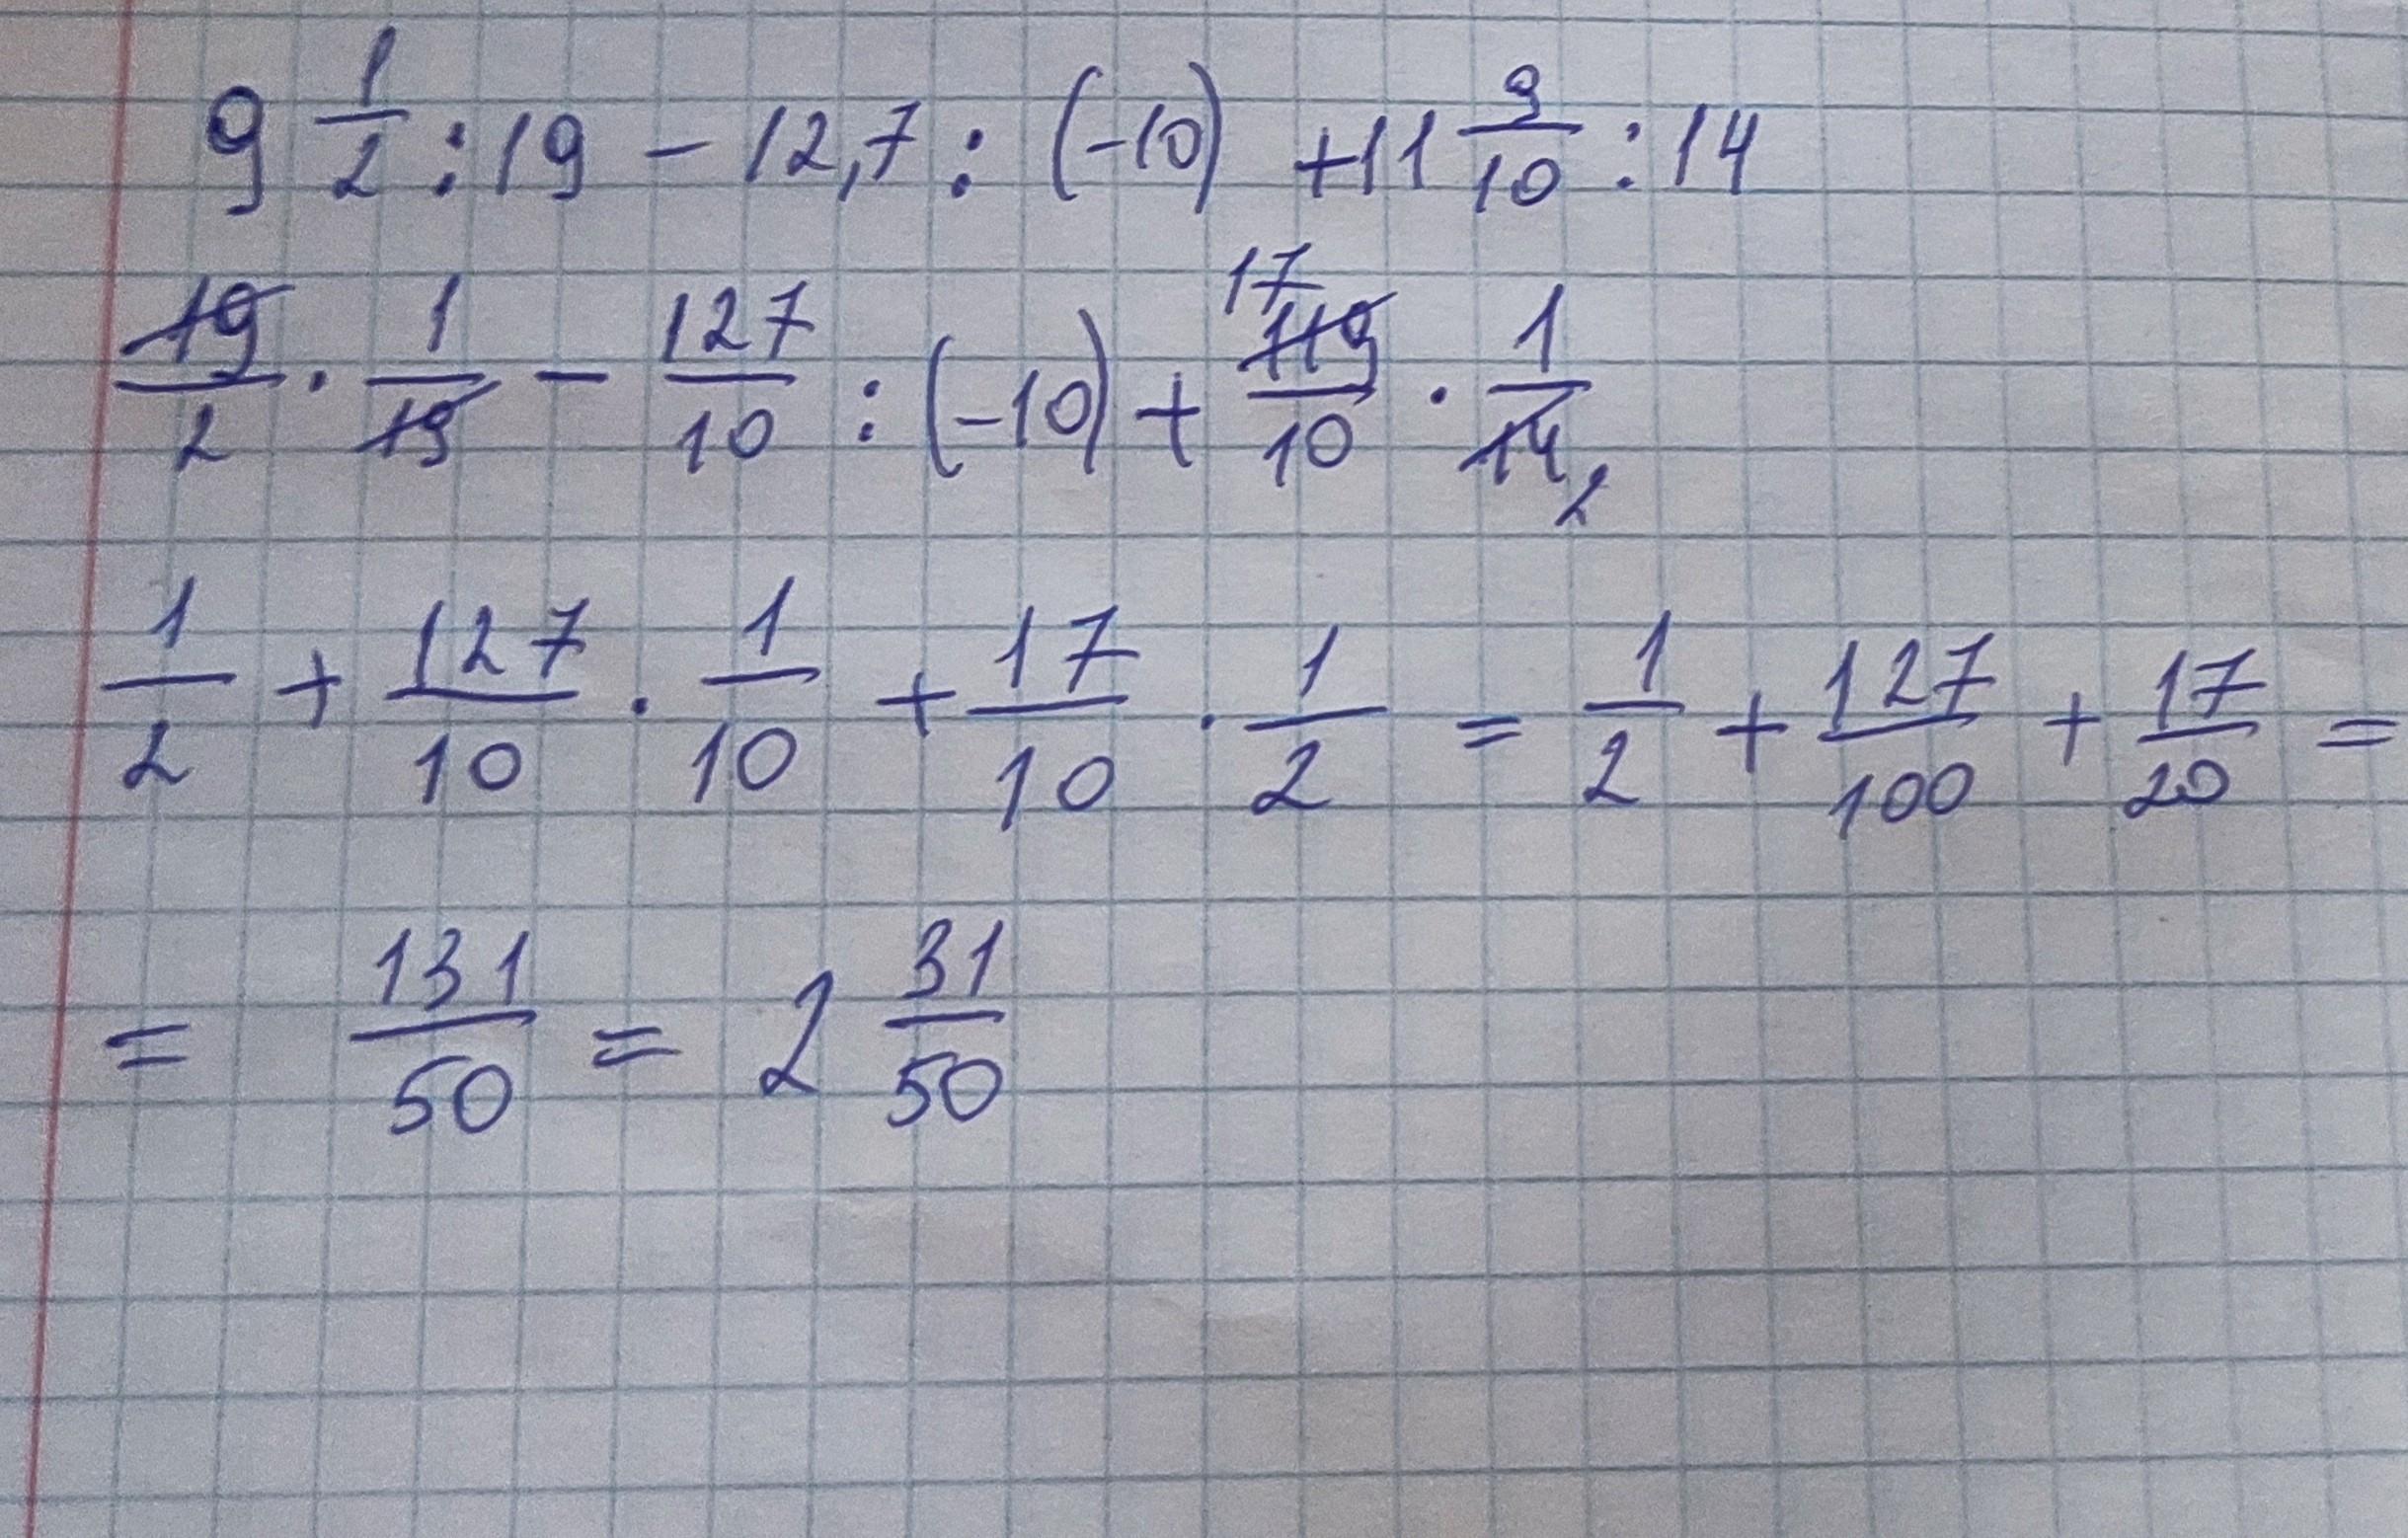 9 1/2 : 19 - 12,7 : (-10) + 11 9/10 : 14
19/2 · 1/19 - 127/10 : (-10) + 17 119/10 · 1/14 2
1/2 + 127/10 · 1/10 + 17/10 · 1/2 = 1/2 + 127/100 + 17/20 =
= 131/50 = 2 31/50